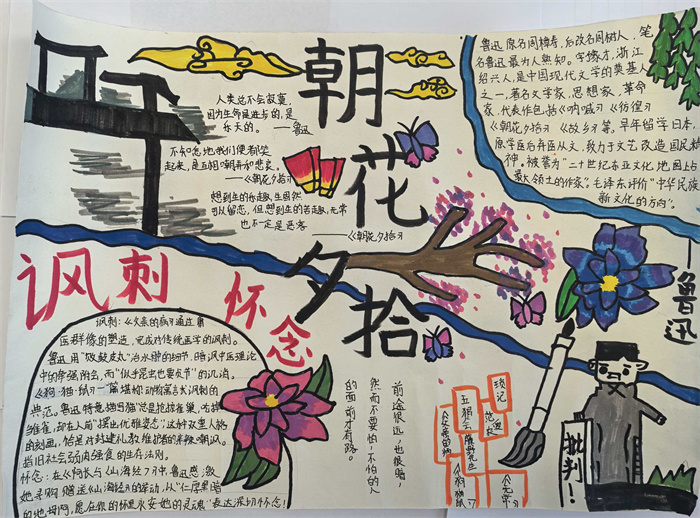 朝花夕拾
鲁迅原名周樟寿,后改名周树人,笔
名鲁迅最为人熟知。字豫才,浙江
绍兴人,是中国现代文学的奠基人
之一,著名文学家,思想家,革命
家,代表作包括《呐喊》《彷徨》
《朝花夕拾》《故乡》等,早年留学日本,
原学医后弃医从文,致力于文艺改造国民精
神。被誉为“二十世纪东亚文化地图上占
最大领土的作家”。毛泽东评价“中华民族
新文化的方向”。
——鲁迅
人类总不会寂寞,
因为生命是进步的,是
乐天的。——鲁迅
不知怎地我们便都笑
起来,是互相的嘲弄和悲哀。
——《朝花夕拾》
想到生的乐趣,生固然
可以留恋,但想到生的苦趣,无常
也不一定是恶客
——《朝花夕拾》
讽刺
怀念
讽刺:《父亲的病》通过
医群像的塑造,完成对传统医学的讽刺。
鲁迅用“败鼓皮丸”治水肿的细节,暗讽中医理论
中的牵强附会,而
《狗·猫·鼠》一篇堪称动物寓言式讽刺的
典范。鲁迅特意描写猫
的刻画,恰是对封建礼教维护者的
指旧社会弱肉强食的生存法则。
怀念:在《阿长与《山海经》》中,鲁迅感激
她寻购赠送《山海经》的举动,从“仁厚黑暗
的地母阿,愿在你怀里永安她的灵魂”表达深切怀念!
前途很远,也很暗,
然而不要怕,不怕的人
的面前才有路。
琐记
范爱农
藤野先生
五猖会
父亲的病
狗猫鼠
《无常》
批判!